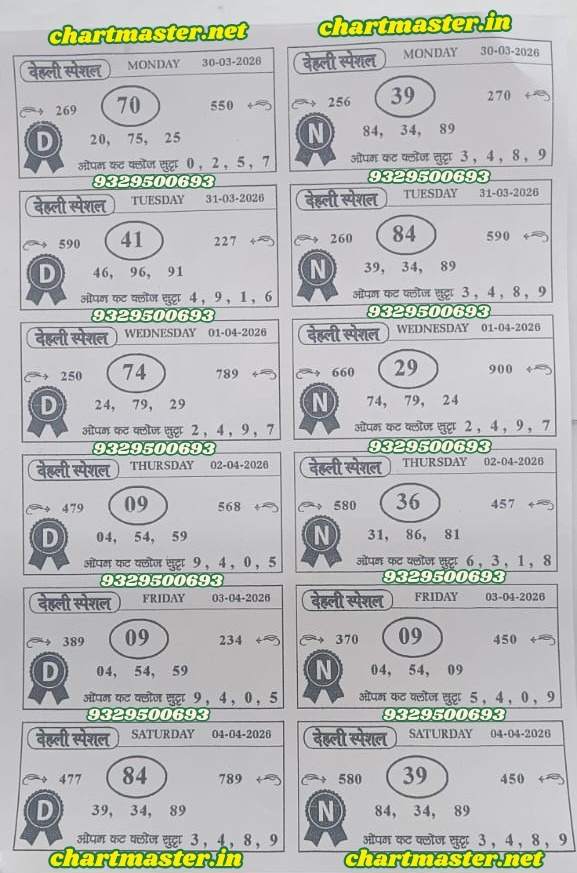 chartmaster.net
chartmaster.in
देहली स्पेशल MONDAY 30-03-2026
269 70 550
D 20, 75, 25
ओपन कट क्लोज सुट्टा 0, 2, 5, 7
9329500693
देहली स्पेशल MONDAY 30-03-2026
256 39 270
N 84, 34, 89
ओपन कट क्लोज सुट्टा 3, 4, 8, 9
9329500693
देहली स्पेशल TUESDAY 31-03-2026
590 41 227
D 46, 96, 91
ओपन कट क्लोज सुट्टा 4, 9, 1, 6
9329500693
देहली स्पेशल TUESDAY 31-03-2026
260 84 590
N 39, 34, 89
ओपन कट क्लोज सुट्टा 3, 4, 8, 9
9329500693
देहली स्पेशल WEDNESDAY 01-04-2026
250 74 789
D 24, 79, 29
ओपन कट क्लोज सुट्टा 2, 4, 9, 7
9329500693
देहली स्पेशल WEDNESDAY 01-04-2026
660 29 900
N 74, 79, 24
ओपन कट क्लोज सुट्टा 2, 4, 9, 7
9329500693
देहली स्पेशल THURSDAY 02-04-2026
479 09 568
D 04, 54, 59
ओपन कट क्लोज सुट्टा 9, 4, 0, 5
9329500693
देहली स्पेशल THURSDAY 02-04-2026
580 36 457
N 31, 86, 81
ओपन कट क्लोज सुट्टा 6, 3, 1, 8
9329500693
देहली स्पेशल FRIDAY 03-04-2026
389 09 234
D 04, 54, 59
ओपन कट क्लोज सुट्टा 9, 4, 0, 5
9329500693
देहली स्पेशल FRIDAY 03-04-2026
370 09 450
N 04, 54, 09
ओपन कट क्लोज सुट्टा 5, 4, 0, 9
9329500693
देहली स्पेशल SATURDAY 04-04-2026
477 84 789
D 39, 34, 89
ओपन कट क्लोज सुट्टा 3, 4, 8, 9
देहली स्पेशल SATURDAY 04-04-2026
580 39 450
N 84, 34, 89
ओपन कट क्लोज सुट्टा 3, 4, 8, 9
chartmaster.in
chartmaster.net